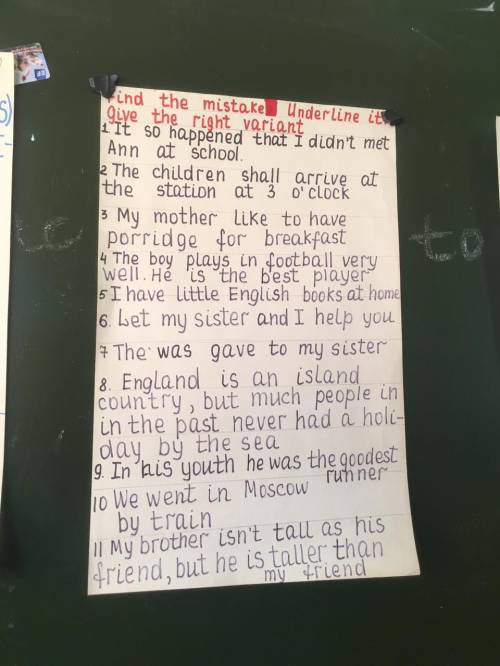 Find the mistake. Underline it
give the right variant
1 It so happened that I didn't met
Ann at school.
2 The children shall arrive at
the station at 3 o'clock
3 My mother like to have
porridge for breakfast
4 The boy plays in football very
well. He is the best player
5 I have little English books at home
6. Let my sister and I help you
7 The was gave to my sister
8. England is an island
country, but much people in
in the past never had a holi-
day by the sea
9. In his youth he was the goodest
runner
10 We went in Moscow
by train
11 My brother isn't tall as his
friend, but he is taller than
my friend
to